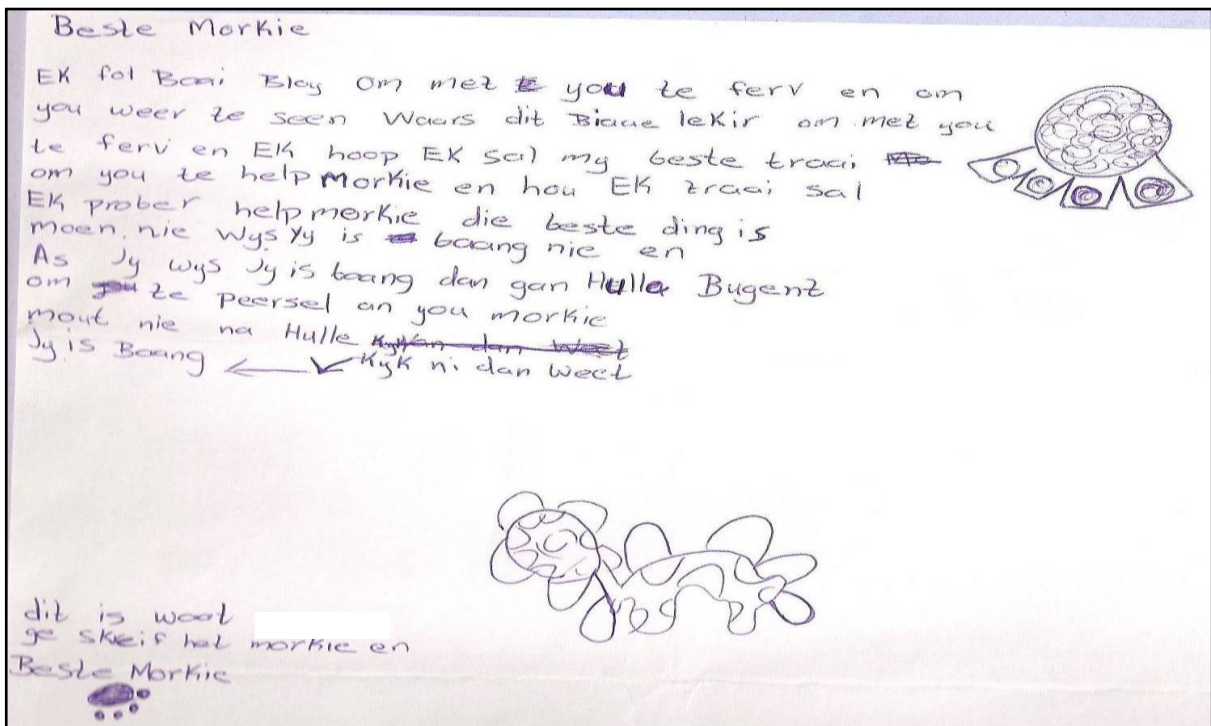 Beste Morkie
EK fol Baai Blay om met you te ferv en om
you weer te seen Waars dit Biaue lekir om met you
te ferv en EK hoop EK sal my beste traai
om you te help morkie en hou EK traai sal
EK prober help morkie die beste ding is
moen nie wys yy is baang nie en
As Jy wys Jy is baang dan gan Hulle Bugent
om te peersel an you morkie
mout nie na Hulle
Jy is Baang Kyk ni dan weet
dit is woat
ge skeif het morkie en
Beste Morkie